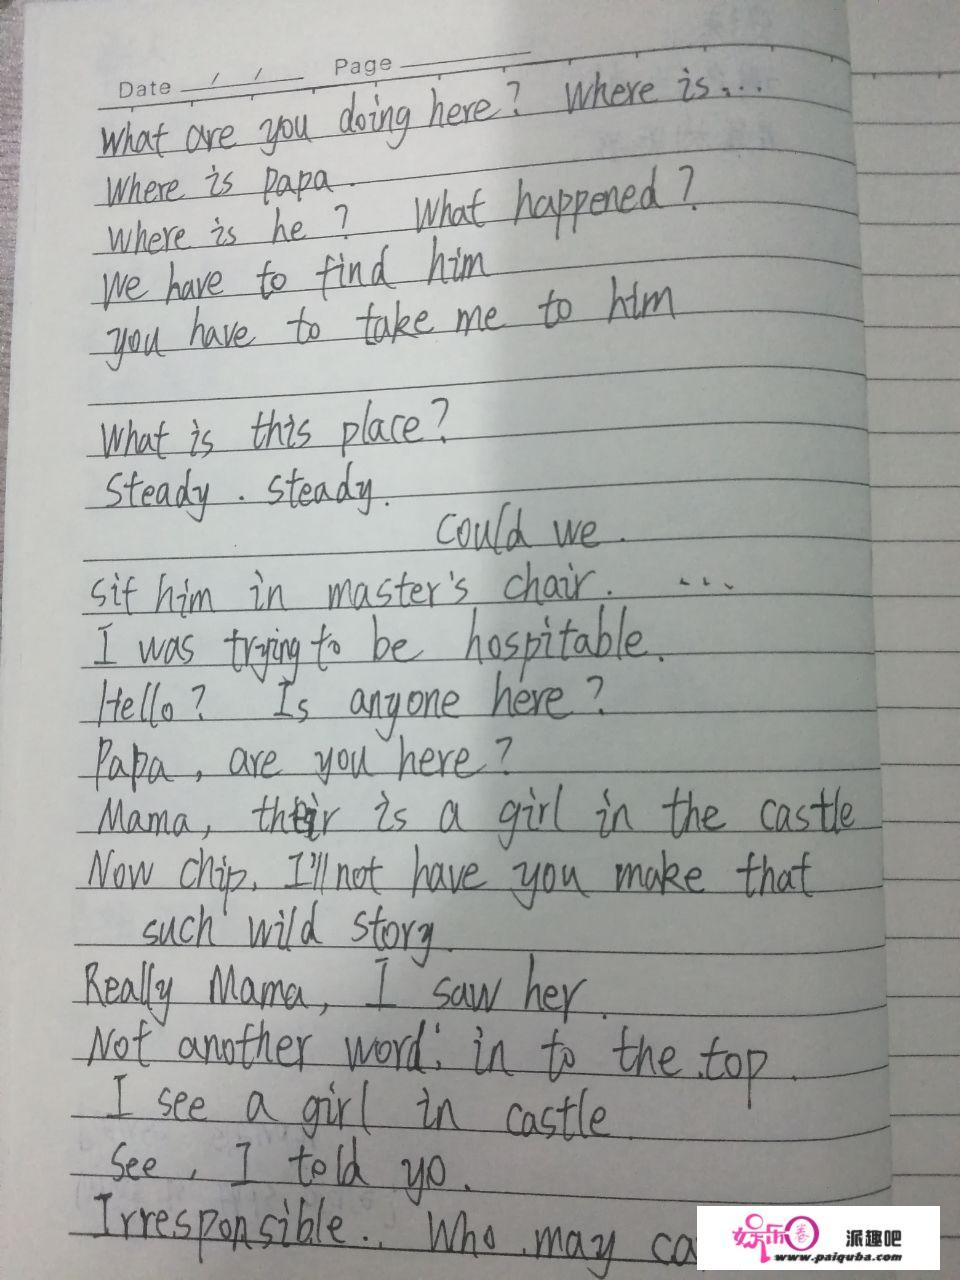 Date / / Page
What are you doing here? Where is...
Where is papa.
Where is he? What happened?
We have to find him
you have to take me to him
What is this place?
Steady. steady.
Could we.
sit him in master's chair. ...
I was trying to be hospitable.
Hello? Is anyone here?
Papa, are you here?
Mama, is a girl in the castle
Now chip, I'll not have you make that
such wild story.
Really Mama, I saw her.
Not another word: in to the top.
I see a girl in castle
See, I told yo.
Irresponsible.. Who may ca
娱乐圈 派趣吧
www.paiquba.com